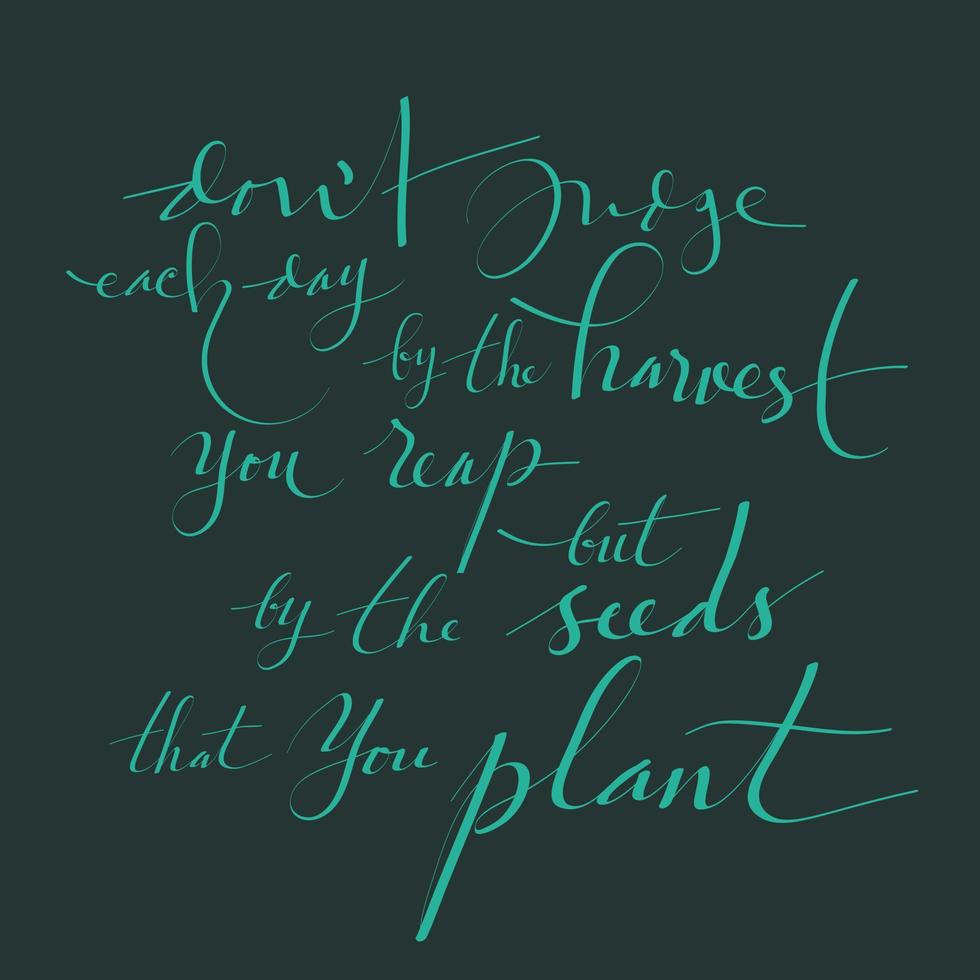 don't Judge
each day
by the harvest
you reap
but
by the seeds
that You plant